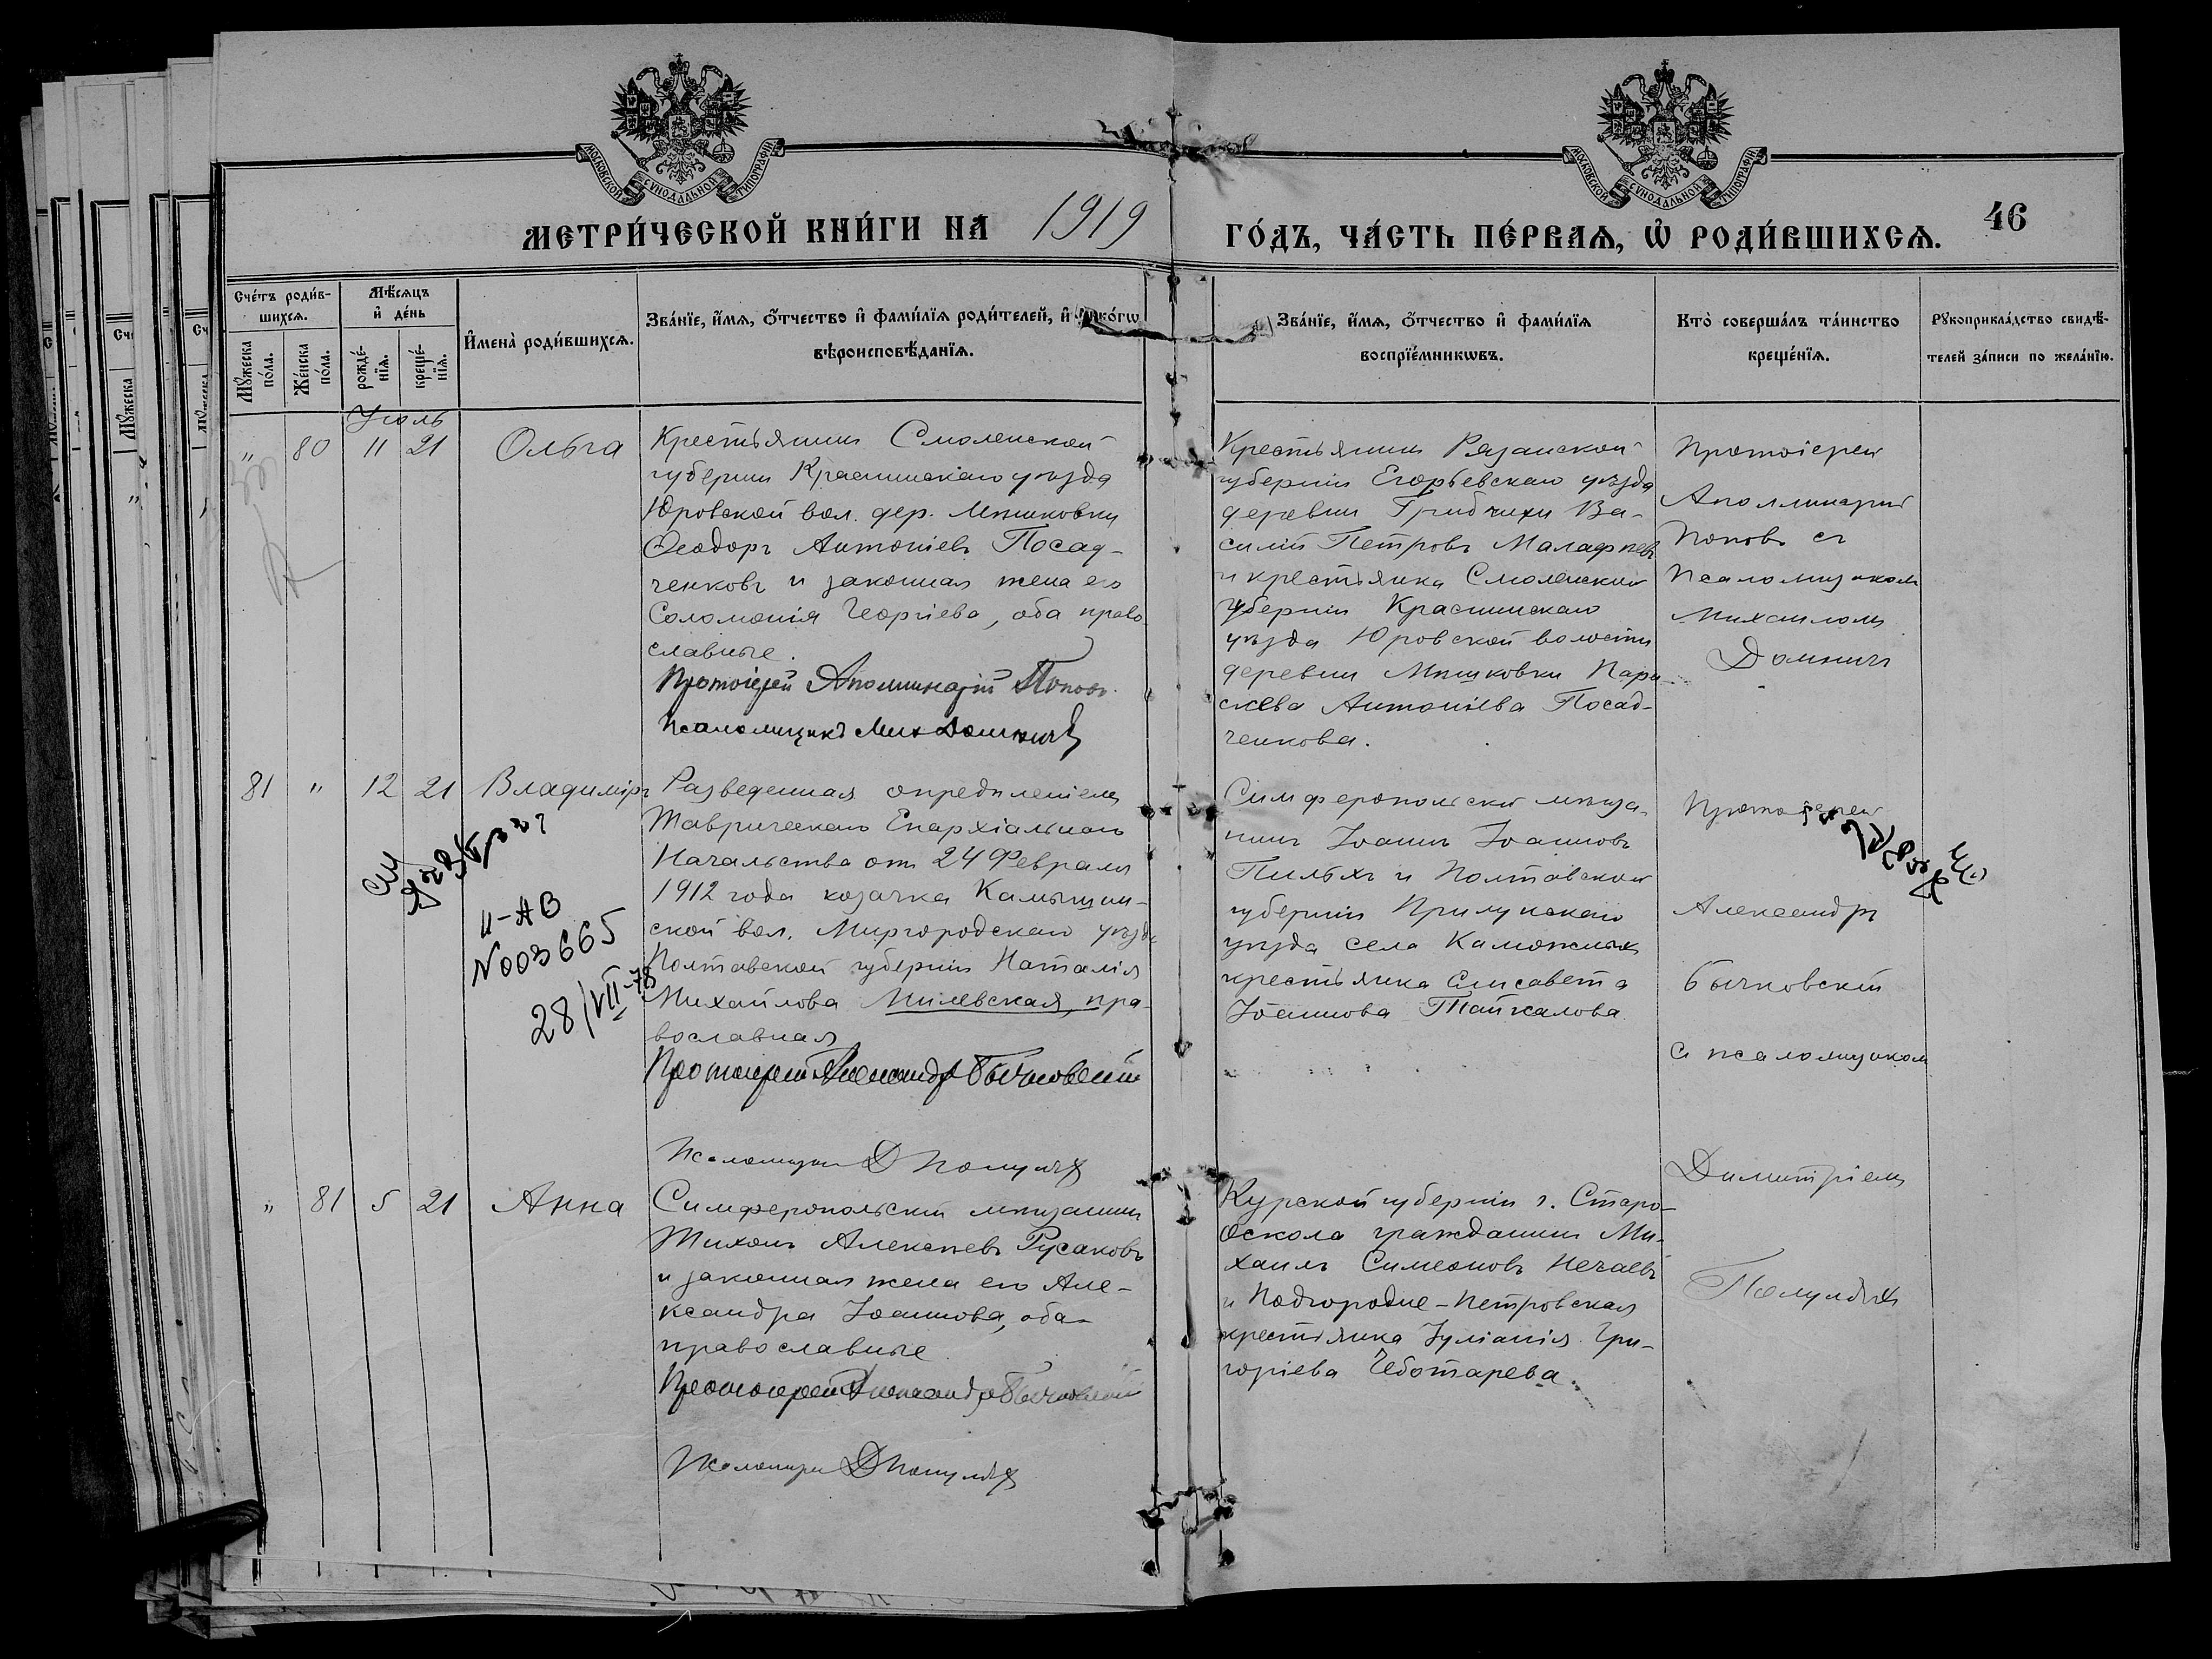 МОСКОВСКОЙ СѴНОДАЛЬНОЙ ТИПОГРАФІИ
МОСКОВСКОЙ СѴНОДАЛЬНОЙ ТИПОГРАФІИ
МЕТРИ́ЧЕСКОЙ КНИ́ГИ НА 1919 ГО́ДЪ, ЧА́СТЬ ПЕ́РВАѦ, Ѡ҆ РОДИ́ВШИХСѦ.
46
Сче́тъ роди́в-
шихсѧ.
Мꙋ́жеска
по́ла.
Же́нска
по́ла.
Мѣ́сѧцъ
и҆ де́нь
рожде́-
нїѧ.
креще́-
нїѧ.
И҆мена̀ роди́вшихсѧ.
Зва́нїе, и҆́мѧ, ѻ҆́тчество и҆ фами́лїѧ роди́телей, и҆ како́гѡ
вѣроисповѣ́данїѧ.
Зва́нїе, и҆́мѧ, ѻ҆́тчество и҆ фами́лїѧ
воспрїе́мникѡвъ.
Кто̀ соверша́лъ та́инство
креще́нїѧ.
Рꙋкоприкла́дство свидѣ́-
телей за́писи по жела́нїю.
Іюль
" 80 11 21 Ольга
Крестьянинъ Смоленской
губерніи Краснинскаго уѣзда
Юровской вол. дер. Мишковки
Ѳеодоръ Антоніевъ Посад-
ченковъ и законная жена его
Соломонія Георгіева, оба право
славные.
Протоіерей Аполлинарій Поповъ.
Псаломщикъ Мих Домничъ
Крестьянинъ Рязанской
губерніи Егорьевскаго уѣзда
деревни Гридчихи Ва-
силій Петровъ Малафѣевъ
и крестьянка Смоленской
губерніи Краснинскаго
уѣзда Юровской волости
деревни Мишковки Пара
скева Антоніева Посад-
ченкова.
Протоіерей
Аполлинарій
Поповъ съ
Псаломщикомъ
Михаиломъ
Домничъ
81 " 12 21 Владиміръ
II-АВ
N003665
28/VII-78
Разведенная опредѣленіемъ
Таврическаго Епархіальнаго
Начальства отъ 24 Февраля
1912 года козачка Камышин-
ской вол. Миргородскаго уѣзда
Полтавской губерніи Наталія
Михайлова Милевская, пра-
вославная
Протоіерей Александръ Бычковскій
Псаломщикъ Д
Симферопольскій мѣща-
нинъ Іоаннъ Іоанновъ
и Полтавской
губерніи Прилукскаго
уѣзда села
крестьянка Елисавета
Іоаннова
Протоіерей
Александръ
Бычковскій
съ псаломщикомъ
Димитріемъ
" 81 5 21 Анна
Симферопольскій мѣщанинъ
Тихонъ Алексѣевъ Русаковъ
и законная жена его Але-
ксандра Іоаннова, оба
православные
Протоіерей Александръ Бычковскій
Псаломщикъ Д
Курской губерніи г. Старо-
Оскола гражданинъ Ми-
хаилъ Симеоновъ Нечаевъ
и Подгородне-Петровская
крестьянка Іуліанія Гри-
горіева Чеботарева.